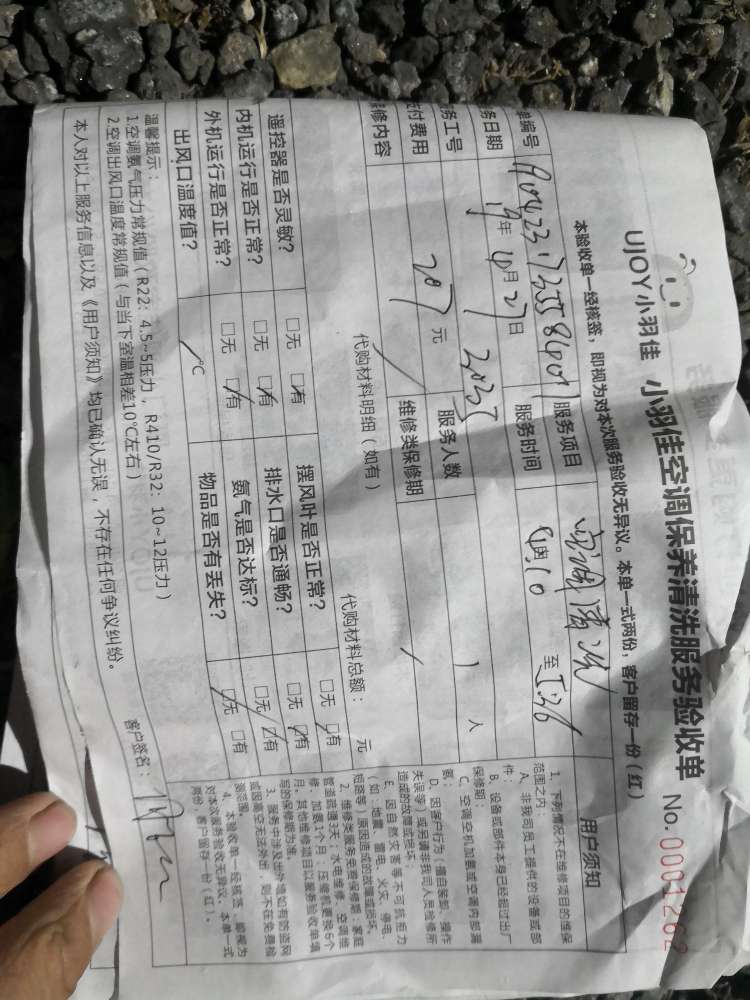 UJOY小羽佳 小羽佳空调保养清洗服务验收单 No.0001262
本验收单一经核签，即视为对本次服务验收无异议。本单一式两份，客户留存一份（红）
单编号
服务项目 空调清洗
务日期 19年 10月 27日
服务时间 4:10 至 5:26
务工号 2035
服务人数 1 人
应付费用 207 元
维修类保修期 /
修内容 /
代购材料明细（如有）
代购材料总额： 元
遥控器是否灵敏？ □无 ☑有
摆风叶是否正常？ □无 ☑有
内机运行是否正常？ □无 ☑有
排水口是否通畅？ □无 ☑有
外机运行是否正常？ □无 ☑有
氨气是否达标？ □无 ☑有
出风口温度值？ / ℃
物品是否有丢失？ ☑无 □有
温馨提示：
1.空调氨气压力常规值（R22：4.5~5压力，R410/R32：10~12压力）
2.空调出风口温度常规值（与当下室温相差10℃左右）
本人对以上服务信息以及《用户须知》均已确认无误，不存在任何争议纠纷。
客户签名：
用户须知
1、下列情况不在维修项目的维保
范围之内：
A、非我司员工提件的设备或部
件；
B、设备或部件本身已经超过出厂
保修期；
C、空调空机加氨或空调内部漏
氨；
D、因客户行为（擅自装卸、操作
失误等）或另请非我司人员检修所
造成的故障或损坏；
E、因自然灾害等不可抗拒力
（如：地震、雷电、火灾、停电、
短路等）原因造成的故障或损坏。
2、维修类服务免费保修期：家庭
管道疏通3天；水电维修、空调维
修、加氨1个月；压缩机更换6个
月；其他维修项目以服务验收单填
写的保修期为准。
3、服务中涉及出外墙如有防盗网
或因高空无法外出，则不在免费检
测范围。
4、本验收单一经核签，即视为
对本次服务验收无异议。本单一式
两份，客户留存一份（红）。